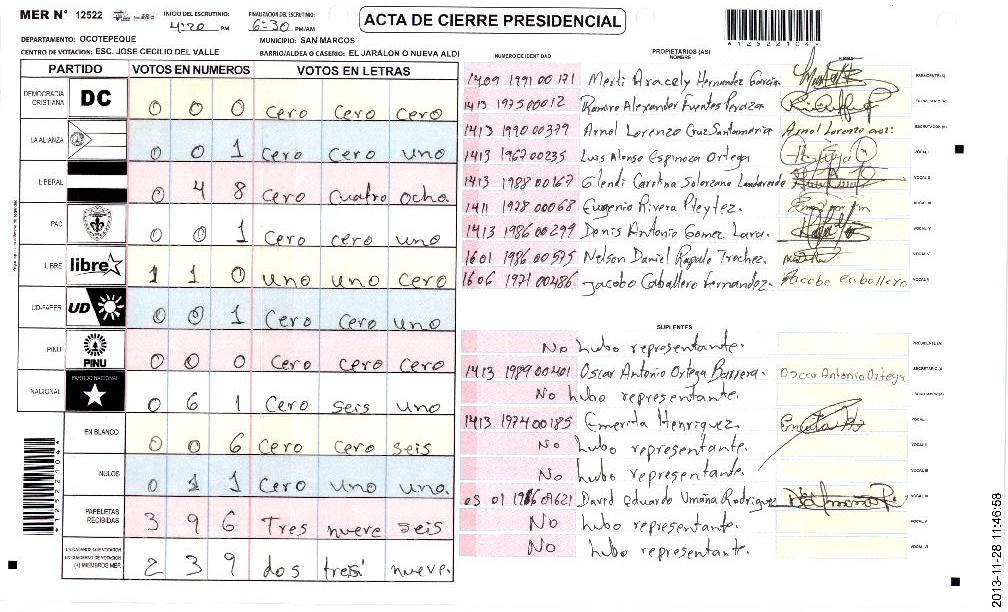 MER N° 12522
INICIO DEL ESCRUTINIO: 4:20 PM
FINALIZACION DEL ESCRUTINIO: 6:30 PM/AM
ACTA DE CIERRE PRESIDENCIAL
A12522104
DEPARTAMENTO: OCOTEPEQUE
MUNICIPIO: SAN MARCOS
CENTRO DE VOTACION: ESC. JOSE CECILIO DEL VALLE
BARRIO/ALDEA O CASERIO: EL JARALON O NUEVA ALDI
PARTIDO VOTOS EN NUMEROS VOTOS EN LETRAS
DEMOCRACIA CRISTIANA DC 0 0 0 Cero Cero Cero
LA ALIANZA 0 0 1 Cero Cero uno
LIBERAL 0 4 8 Cero Cuatro ocho
PAC 0 0 1 Cero cero uno
LIBRE libre 1 1 0 uno uno cero
UD-FAPER UD 0 0 1 Cero Cero uno
PINU PINU 0 0 0 Cero Cero Cero
NACIONAL PARTIDO NACIONAL 0 6 1 Cero seis uno
EN BLANCO 0 0 6 Cero Cero seis
NULOS 0 1 1 Cero uno uno.
PAPELETAS RECIBIDAS 3 9 6 Tres nueve seis
(+) MIEMBROS MER 2 3 9 dos tres nueve.
NUMERO DE IDENTIDAD
PROPIETARIOS (AS)
NOMBRE
1409 1991 00171 Merli Aracely Hernandez Garcia PRESIDENTE(A)
1413 1975 00012 Ramiro Alexander Fuentes Peraza SECRETARIO(A)
1413 1990 00379 Arnol Lorenzo Cruz Santamaria Arnol Lorenzo ESCRUTADOR(A)
1413 1967 00235 Luis Alonso Espinoza Ortega VOCAL I
1413 1988 00167 Glendi Carolina Solorzano Landaverde VOCAL II
1411 1978 00068 Eugenio Rivera Pleytez. VOCAL III
1413 1986 00299 Denis Antonio Gomez Lara. VOCAL IV
1601 1986 00575 Nelson Daniel Rapalo Trochez. VOCAL V
1606 1971 00486 Jacobo Caballero Fernandez. Jacobo Caballero VOCAL VI
SUPLENTES
No hubo representante. PRESIDENTE(A)
1413 1989 00401 Oscar Antonio Ortega Barrera. Oscar Antonio Ortega SECRETARIO(A)
No hubo representante. ESCRUTADOR(A)
1413 1974 00185 Emerita Henriquez VOCAL I
No hubo representante. VOCAL II
No hubo representante. VOCAL III
David Eduardo Umaña Rodriguez VOCAL IV
No hubo representante. VOCAL V
No hubo representante. VOCAL VI
A12522104
2013-11-28 11:46:58